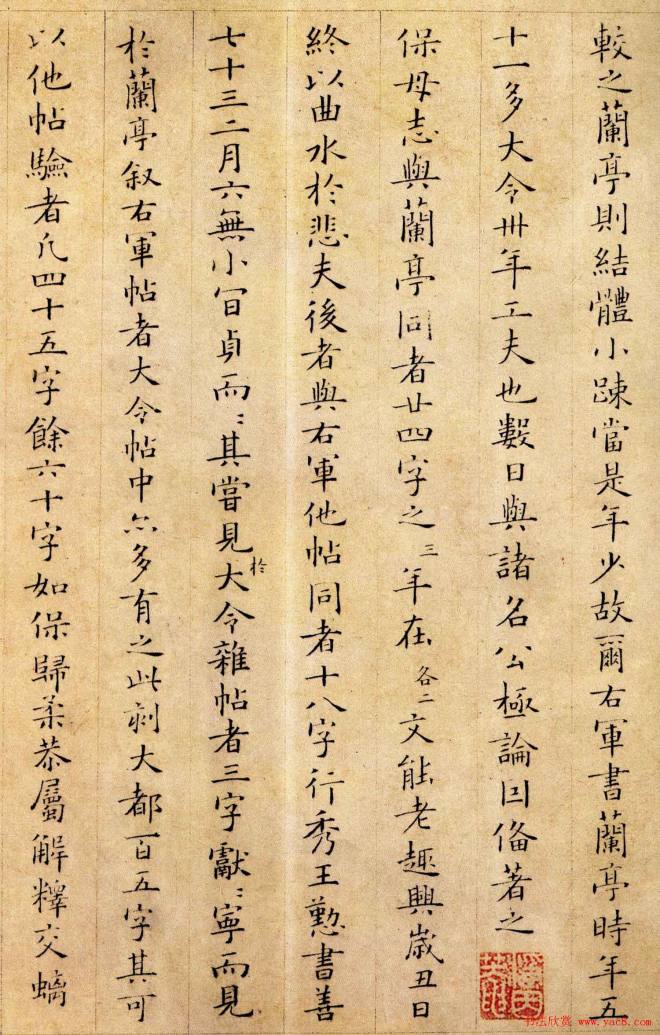 較之蘭亭則結體小疎當是年少故爾右軍書蘭亭時年五
十一多大令卅年工夫也數日與諸名公極論因俻著之
保母志與蘭亭同者廿四字之三年在各二文能老趣興歲丑日
終以曲水於悲夫後者與右軍他帖同者十八字行秀王懃書善
七十三二月六無小冝貞而〻其嘗見於大令雜帖者三字獻〻寧而見
於蘭亭叙右軍帖者大令帖中亦多有之此刻大都一百五字其可
以他帖驗者凡四十五字餘六十字如保歸柔恭屬解釋交螭
书法欣赏 www.yac8.com